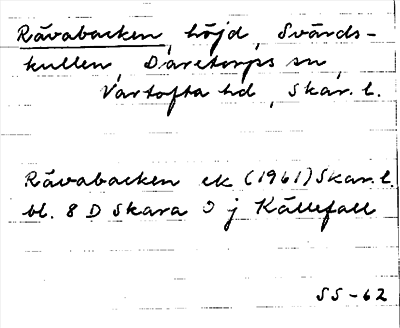 Rävabacken, höjd, Svärds-
kullen, Daretorps sn,
Vartofta hd, Skar. l.
Rävabacken ek (1961) Skar. l.
bl. 8 D Skara 0 j Källefall
SS-62